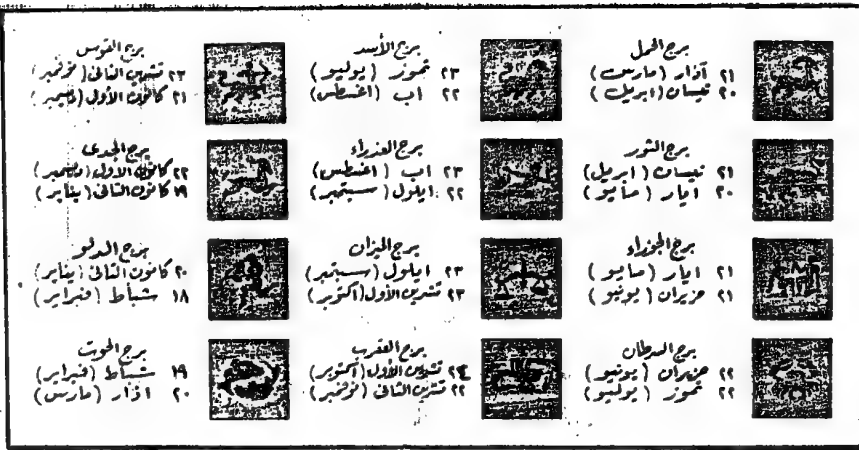 برج الحمل
٢١ آذار (مارس)
٢٠ نيسان (ابريل)
برج الثور
٢١ نيسان (ابريل)
٢٠ ايار (مايو)
برج الجوزاء
٢١ ايار (مايو)
٢١ حزيران (يونيو)
برج السرطان
٢٢ حزيران (يونيو)
٢٢ تموز (يوليو)
برج الأسد
٢٣ تموز (يوليو)
٢٢ اب (اغسطس)
برج العذراء
٢٣ اب (اغسطس)
٢٢ ايلول (سبتمبر)
برج الميزان
٢٣ ايلول (سبتمبر)
٢٣ تشرين الأول (اكتوبر)
برج العقرب
٢٤ تشرين الأول (اكتوبر)
٢٢ تشرين الثانى (نوفمبر)
برج القوس
٢٣ تشرين الثانى (نوفمبر)
٢١ كانون الأول (ديسمبر)
برج الجدى
٢٢ كانون الأول (ديسمبر)
١٩ كانون الثانى (يناير)
برج الدلو
٢٠ كانون الثانى (يناير)
١٨ شباط (فبراير)
برج الحوت
١٩ شباط (فبراير)
٢٠ اذار (مارس)